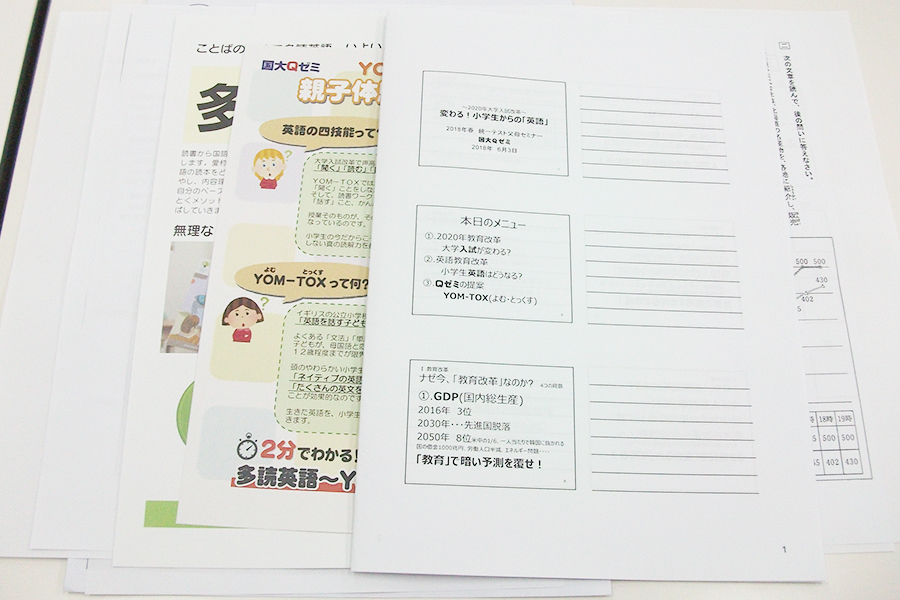 ことばの
多
読書から国語
無理な
国大Qゼミ
YO
親子体
英語の四技能って
大学入試改革で
「聞く」「読む」「
YOM-TOXでは
「聞く」ことをしな
そして、読書ワーク
「話す」こと、かん
授業そのものが、その
なっているのです。
小学生の今だからこ
しない真の読解力を
よむ とっくす
YOM-TOXって何?
イギリスの公立小学校
「英語を話す子ども
よくある「文法」「単
子どもが、母国語と
12歳程度までが限界
頭のやわらかい小学生
「ネイティブの英語
「たくさんの英文を
ことが効果的なのです
生きた英語を、小学生
きます。
2分でわかる!
多読英語~Y
~2020年大学入試改革~
変わる!小学生からの「英語」
2018年春 統一テスト父母セミナー
国大Qゼミ
2018年 6月3日
本日のメニュー
①.2020年教育改革
大学入試が変わる?
②.英語教育改革
小学生英語はどうなる?
③.Qゼミの提案
YOM-TOX(よむ・とっくす)
1.教育改革
ナゼ今、「教育改革」なのか? 4つの背景
①.GDP(国内総生産)
2016年 3位
2030年・・・先進国脱落
2050年 8位 米中の1/6、一人当たりで韓国に抜かれる
国の借金1000兆円、労働人口半減、エネルギー問題・・・・
「教育」で暗い予測を覆せ!
1
二 次の文章を読んで、後の問いに答えなさい。
500 500
430
402
18時 19時
500 500
402 430